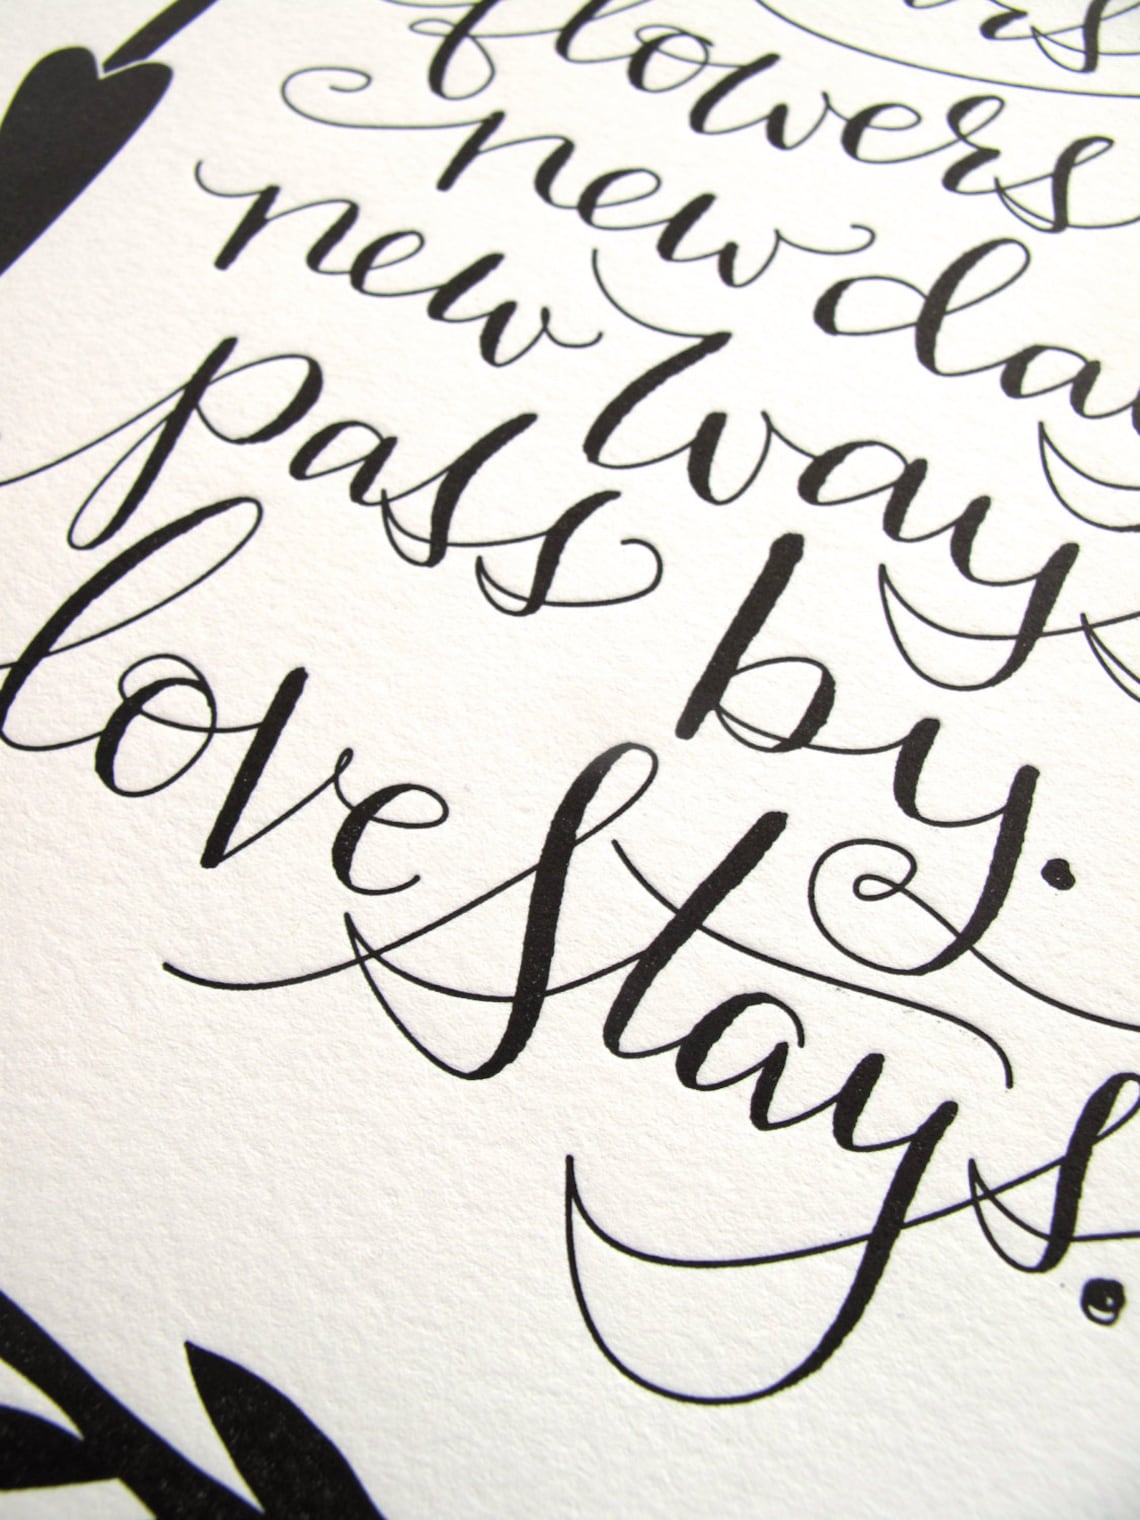 flowers
new day
new way
pass by.
love stays.